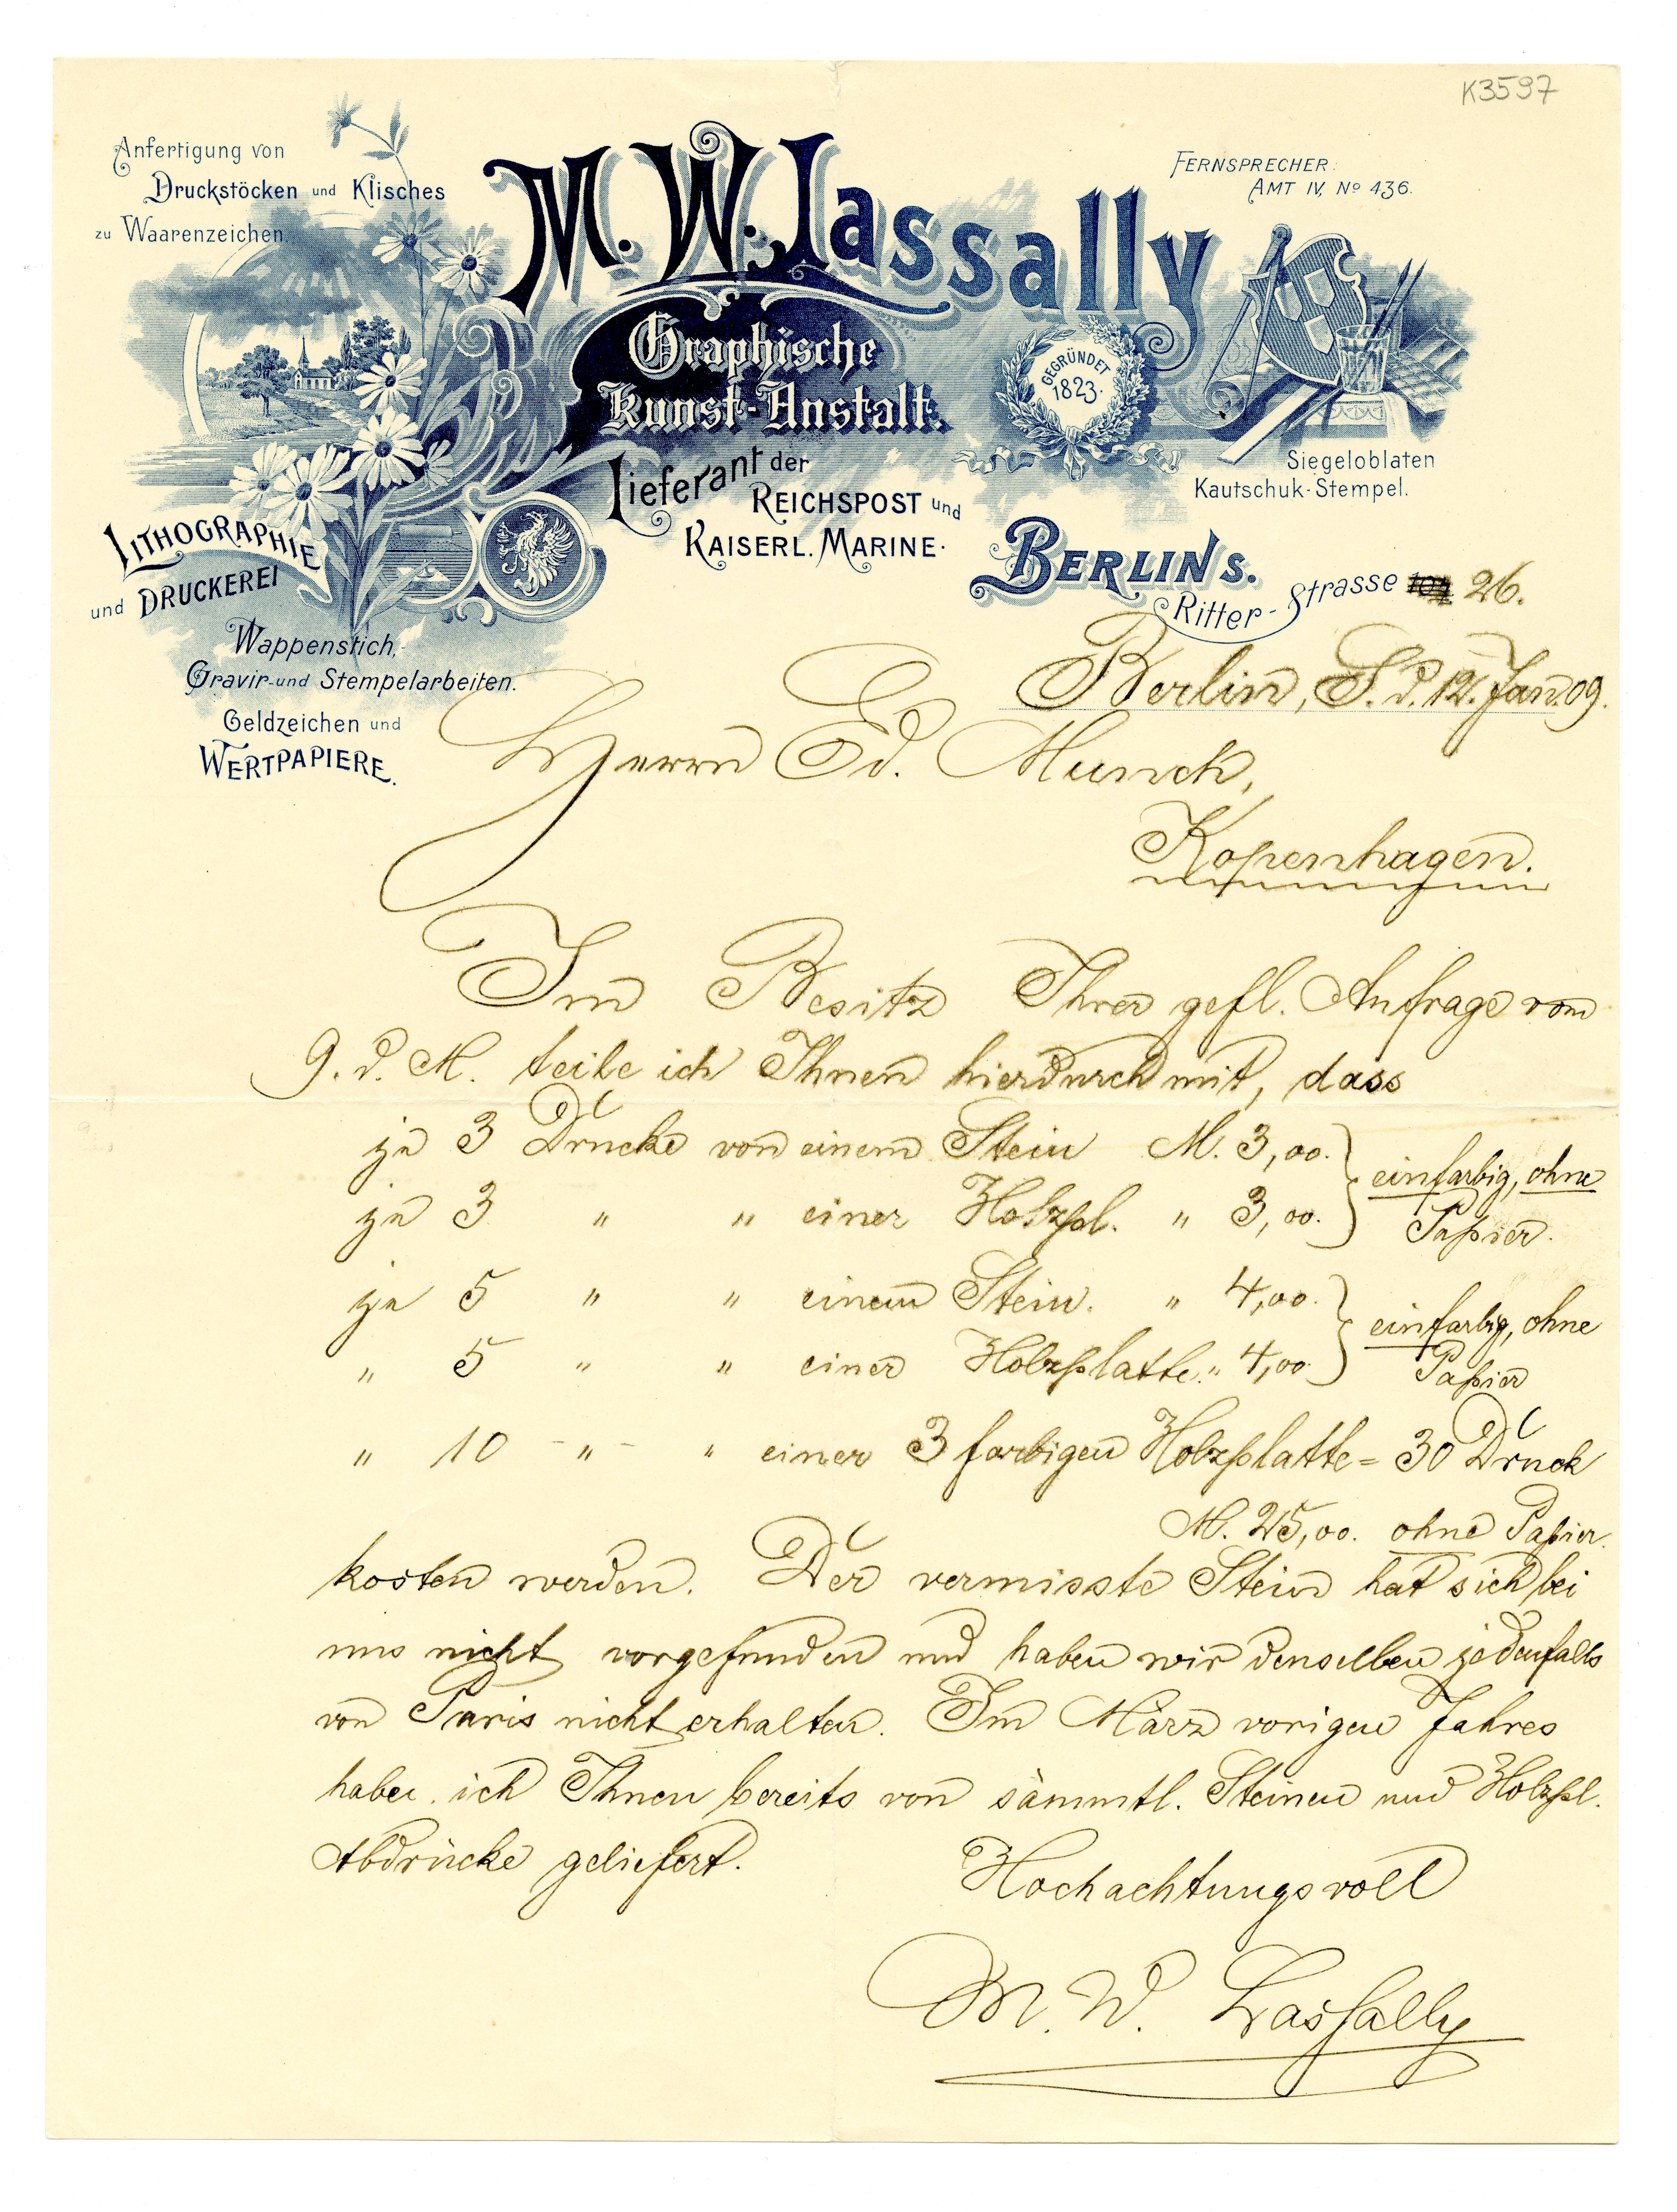 K3597
Anfertigung von
Druckstöcken und Klisches
zu Waarenzeichen.
M. W. Lassally
FERNSPRECHER:
AMT IV, No 436.
Graphische
Kunst-Anstalt.
GEGRÜNDET
1823.
Lieferant der
REICHSPOST und
KAISERL. MARINE.
Siegeloblaten
Kautschuk-Stempel.
LITHOGRAPHIE
und DRUCKEREI
BERLIN S.
Ritter-Strasse 26.
Wappenstich,
Gravir- und Stempelarbeiten.
Geldzeichen und
WERTPAPIERE.
Berlin, S. d. 12. Jan. 09.
Herrn Ed. Munch,
Kopenhagen.
Im Besitz Ihrer gefl. Anfrage vom
9. d. M. teile ich Ihnen hierdurch mit, dass
je 3 Drucke von einem Stein M. 3,00. } einfarbig, ohne
je 3 " " einer Holzpl. " 3,00. } Papier.
je 5 " " einem Stein. " 4,00. } einfarbig, ohne
" 5 " " einer Holzplatte. " 4,00 } Papier
" 10 - " - " einer 3 farbigen Holzplatte = 30 Druck
M. 25,00. ohne Papier.
kosten werden. Der vermisste Stein hat sich bei
uns nicht vorgefunden und haben wir denselben jedenfalls
von Paris nicht erhalten. Im März vorigen Jahres
habe ich Ihnen bereits von sämmtl. Steinen und Holzpl.
Abdrücke geliefert.
Hochachtungsvoll
M. W. Lassally